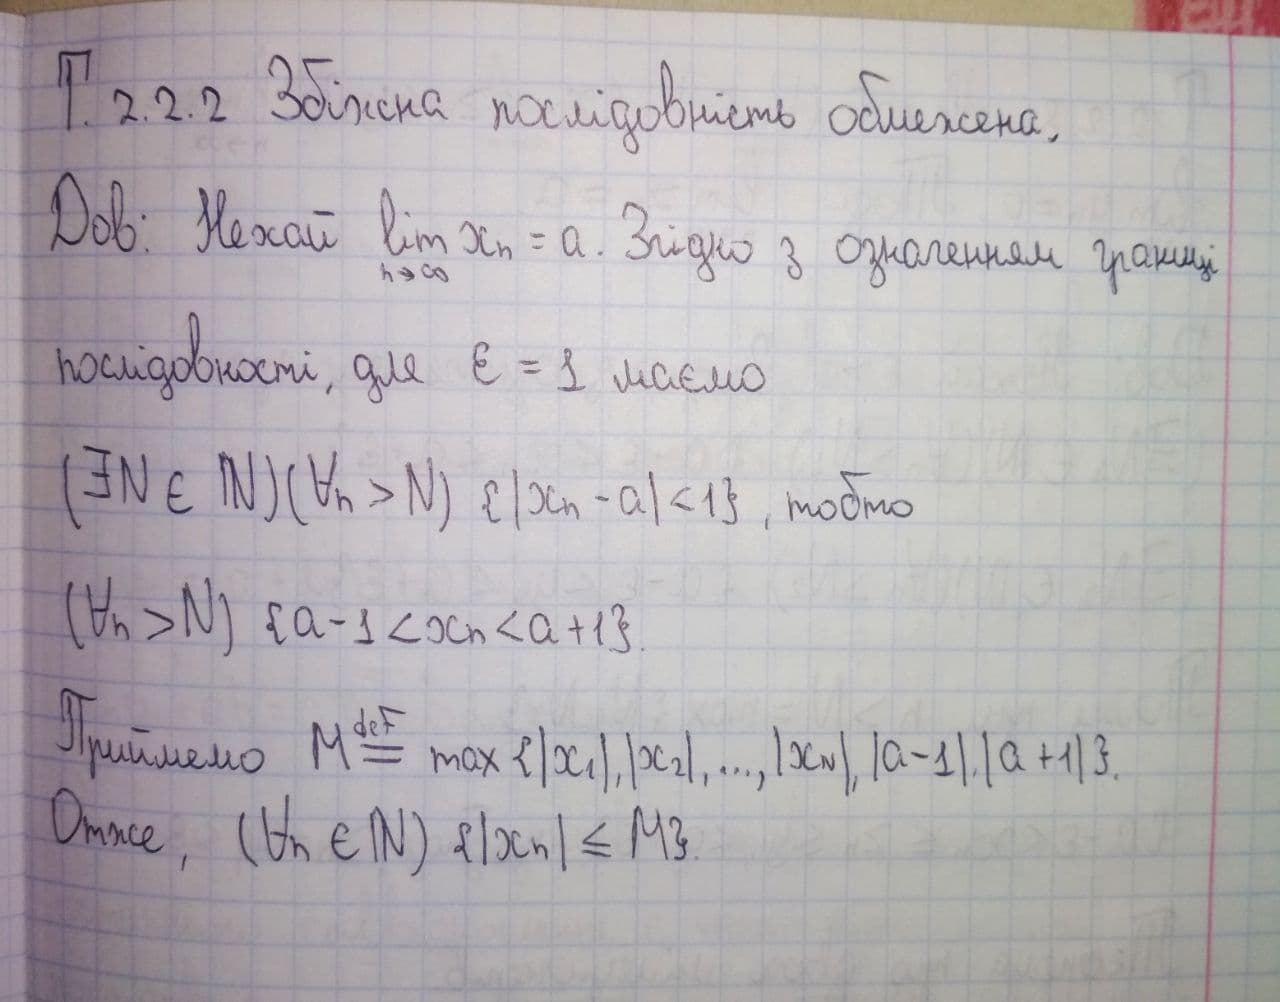 Т. 2.2.2 Збіжна послідовність обмежена.
Дов: Нехай lim xₙ = a. Згідно з означенням границі
n→∞
послідовності, для ε = 1 маємо
(∃N ∈ ℕ)(∀n > N) {|xₙ - a| < 1}, тобто
(∀n > N) {a - 1 < xₙ < a + 1}.
Приймемо M def= max {|x₁|, |x₂|, ..., |x_N|, |a - 1|, |a + 1|}.
Отже, (∀n ∈ ℕ) {|xₙ| ≤ M}.